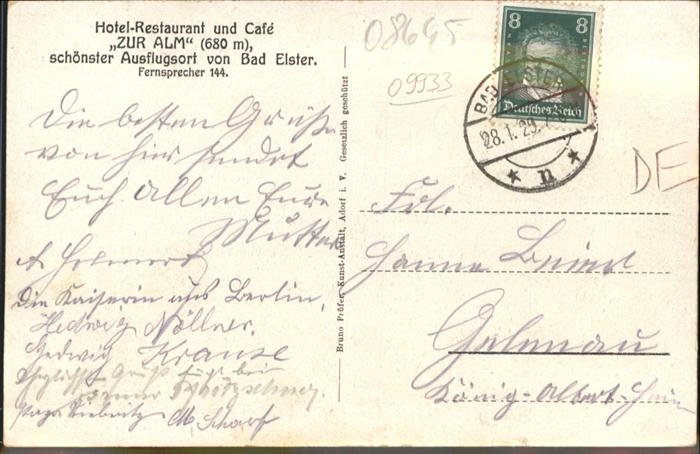 Hotel-Restaurant und Café
„ZUR ALM" (680 m),
schönster Ausflugsort von Bad Elster.
Fernsprecher 144.
Die besten Grüße
von hier sendet
Euch Allen Eure
Mutter
Die Kaiserin aus Berlin,
Hedwig Nöllner
Hedwig Krause
M. Scharf
Bruno Prüfer, Kunst-Anstalt, Adorf i. V. Gesetzlich geschützt
08645
09933
8 8
Deutsches Reich
BAD ELSTER
28.1.29.
* n *
DE
Frl.
Hanna Beier
König-Albert-Heim